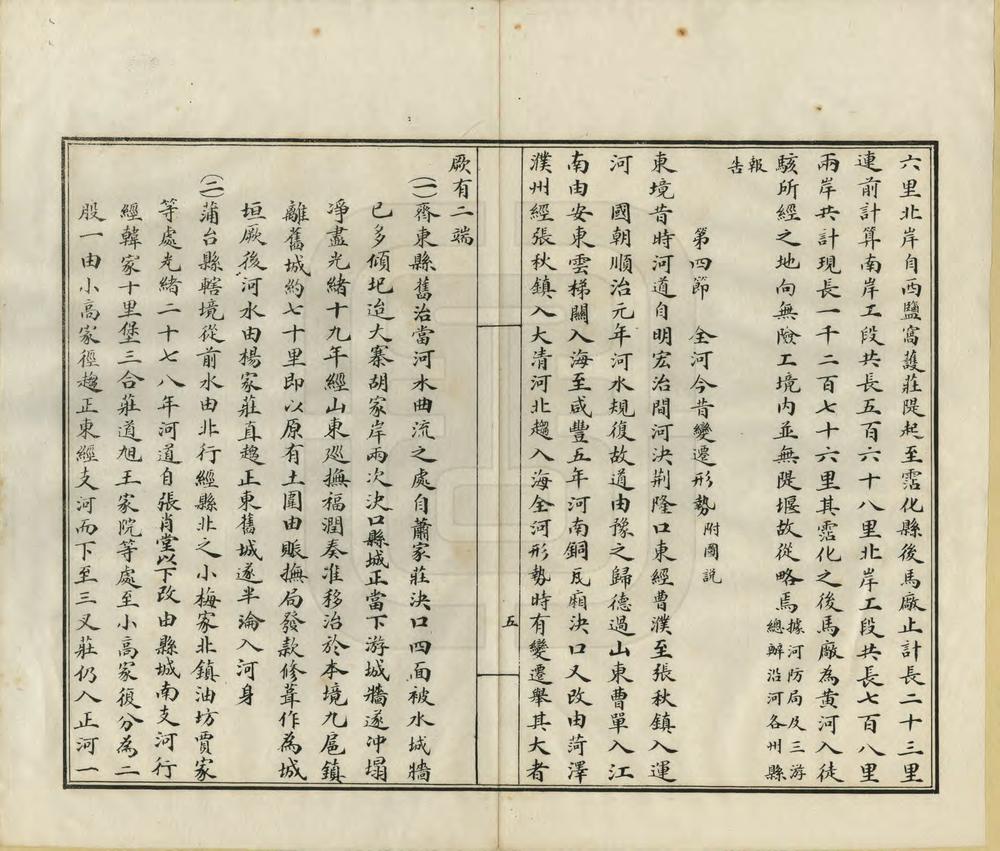 六里北岸自西鹽窩護莊隄起至霑化縣後馬廠止計長二十三里
連前計算南岸工段共長五百六十八里北岸工段共長七百八里
兩岸共計現長一千二百七十六里其霑化之後馬廠為黃河入徒
駭所經之地向無險工境内並無隄堰故從略焉據河防局及三游
總辦沿河各州縣
報
告
第四節 全河今昔變遷形勢附圖説
東境昔時河道自明宏治間河決荆隆口東經曹濮至張秋鎮入運
河 國朝順治元年河水規復故道由豫之歸德過山東曹單入江
南由安東雲梯關入海至咸豐五年河南銅瓦廂決口又改由菏澤
濮州經張秋鎮入大清河北趨入海全河形勢時有變遷舉其大者
五
厥有二端
(一)齊東縣舊治當河水曲流之處自蕭家莊決口四面被水城牆
已多傾圮迨大寨胡家岸兩次決口縣城正當下游城牆遂冲塌
凈盡光緒十九年經山東廵撫福潤奏准移治於本境九扈鎮
離舊城約七十里即以原有土圍由賑撫局發款修葺作為城
垣厥後河水由楊家莊直趨正東舊城遂半淪入河身
(二)蒲台縣轄境從前水由北行經縣北之小梅家北鎮油坊賈家
等處光緒二十七八年河道自張肖堂以下改由縣城南支河行
經韓家十里堡三合莊道旭王家院等處至小高家復分為二
股一由小高家徑趨正東經支河而下至三叉莊仍入正河一